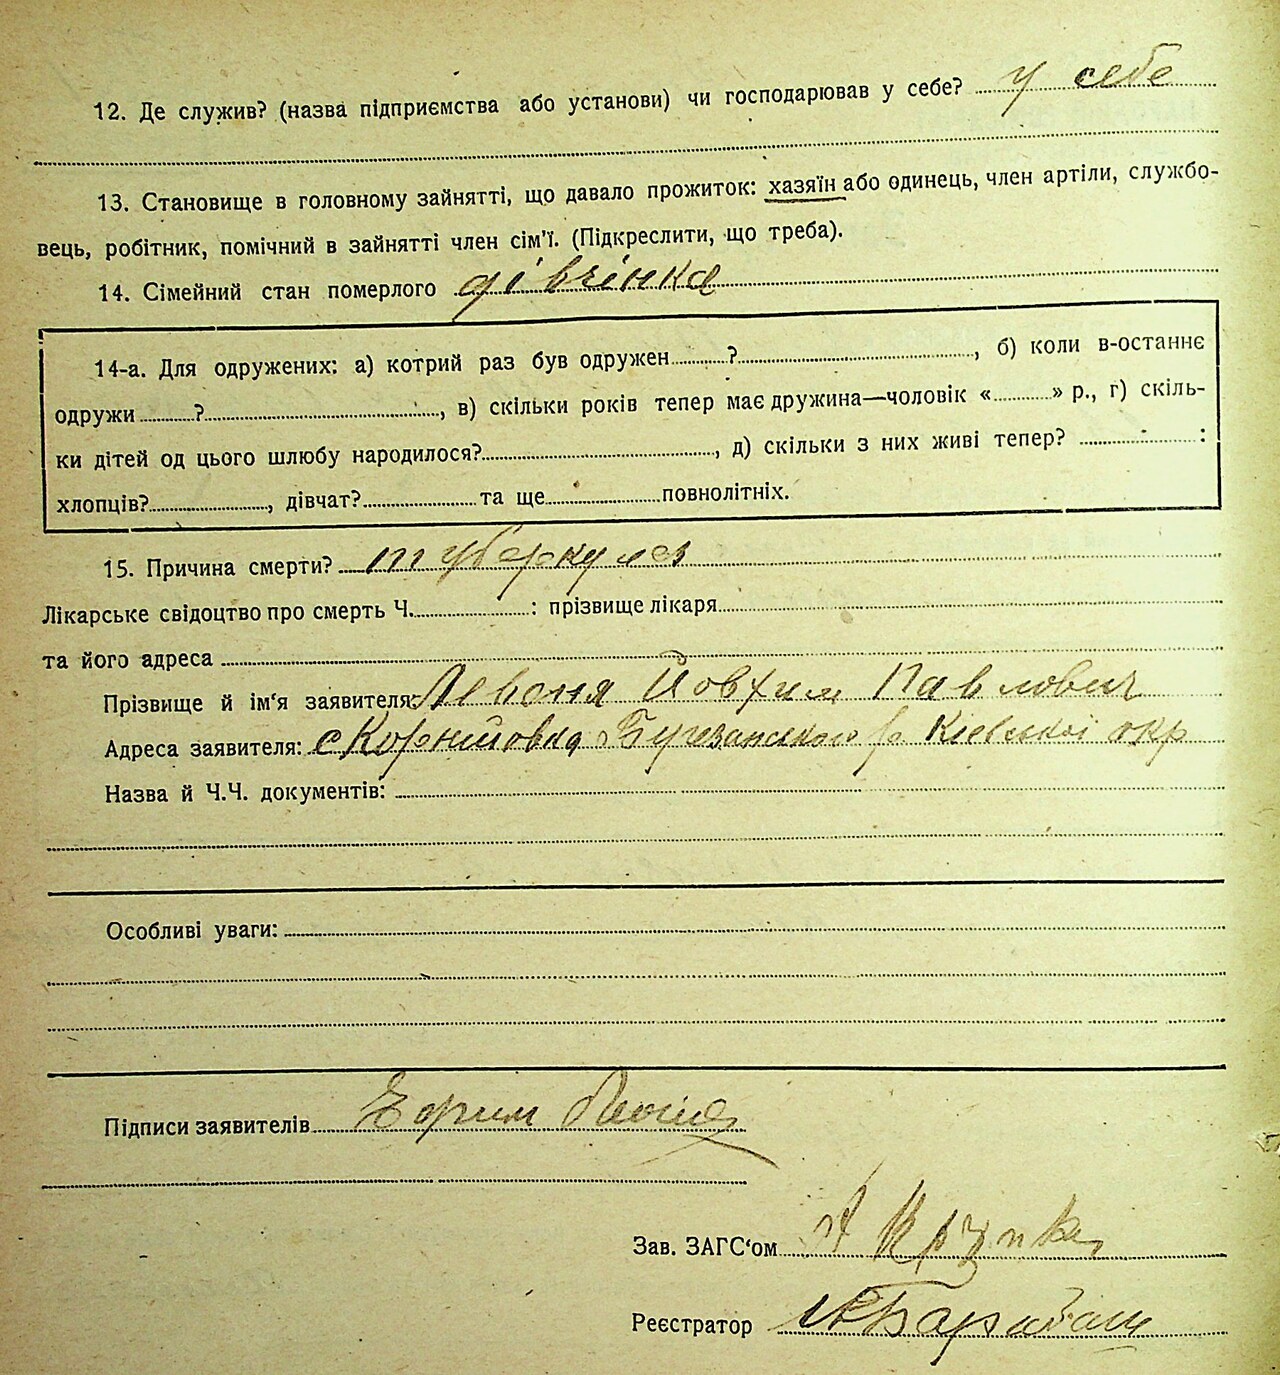 12. Де служив? (назва підприємства або установи) чи господарював у себе? у себе
13. Становище в головному зайнятті, що давало прожиток: хазяїн або одинець, член артіли, службо-
вець, робітник, помічний в зайнятті член сім'ї. (Підкреслити, що треба).
14. Сімейний стан померлого дівчінка
14-а. Для одружених: а) котрий раз був одружен ? , б) коли в-останнє
одружи ? , в) скільки років тепер має дружина—чоловік « » р., г) скіль-
ки дітей од цього шлюбу народилося? , д) скільки з них живі тепер? :
хлопців? , дівчат? та ще повнолітніх.
15. Причина смерти? туберкулез
Лікарське свідоцтво про смерть Ч. : прізвище лікаря
та його адреса
Прізвище й ім'я заявителя: Йовхим Павлович
Адреса заявителя: с Корнтовка р Кіевської окр
Назва й Ч.Ч. документів:
Особливі уваги:
Підписи заявителів
Зав. ЗАГС'ом
Реєстратор